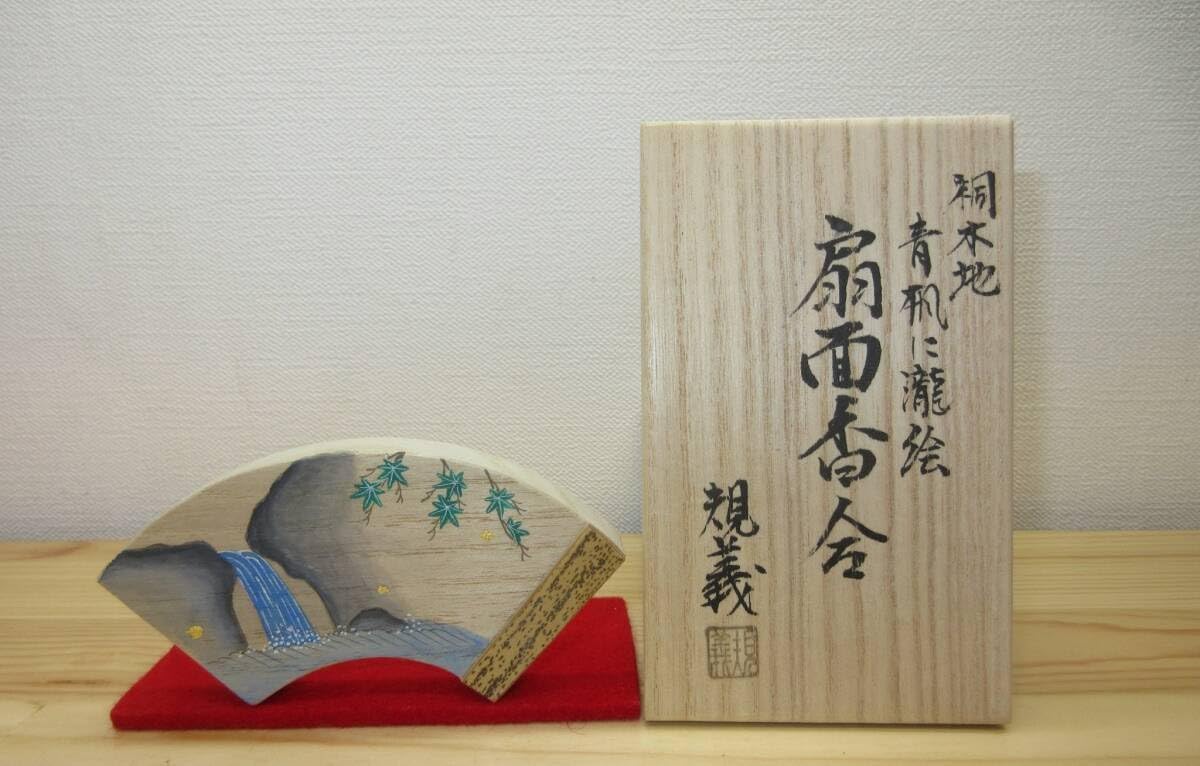 桐木地
青楓に瀧絵
扇面香合
規義
規義